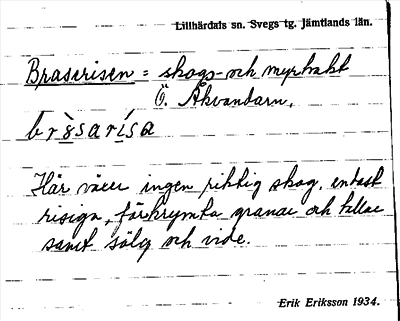 Lillhärdals sn. Svegs tg. Jämtlands län.
Braserisen = skogs- och myrtrakt
Ö. Åkvandarn.
brä̀sarísa
Här växer ingen riktig skog, endast
risiga, förkrympta granar och tallar
samt sälg och vide.
Erik Eriksson 1934.